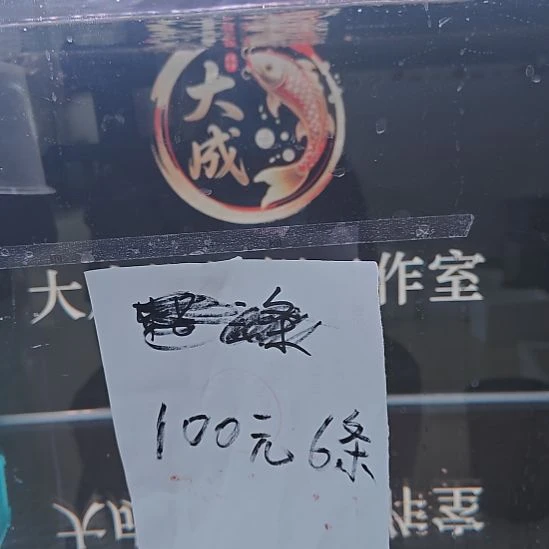 大成
大
作室
100元6条